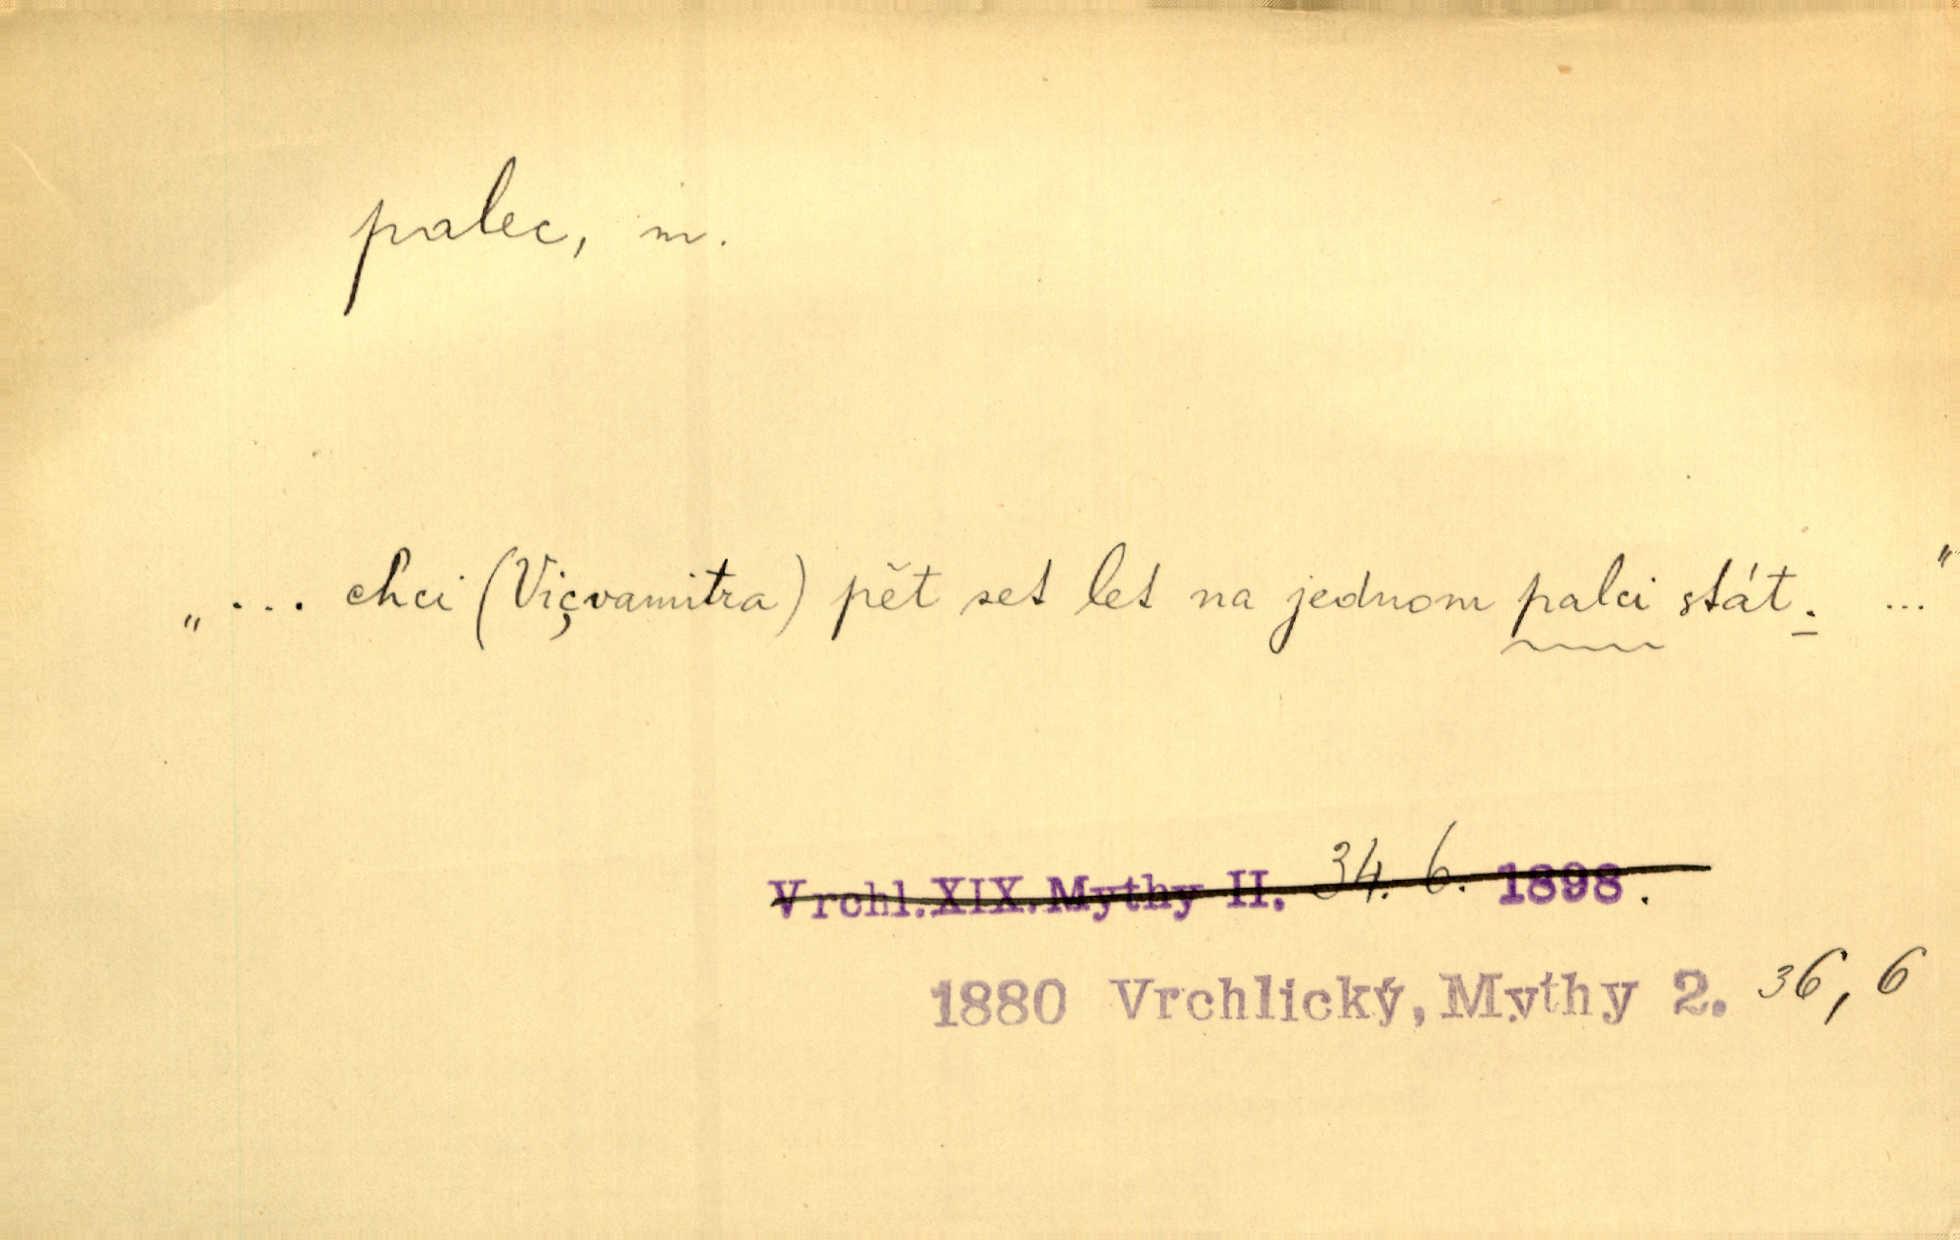 palec, m.
„... chci (Viçvamitra) pět set let na jednom palci stát. ..."
Vrchl.XIX.Mythy II. 34. 6. 1898.
1880 Vrchlický, Mythy 2. 36, 6